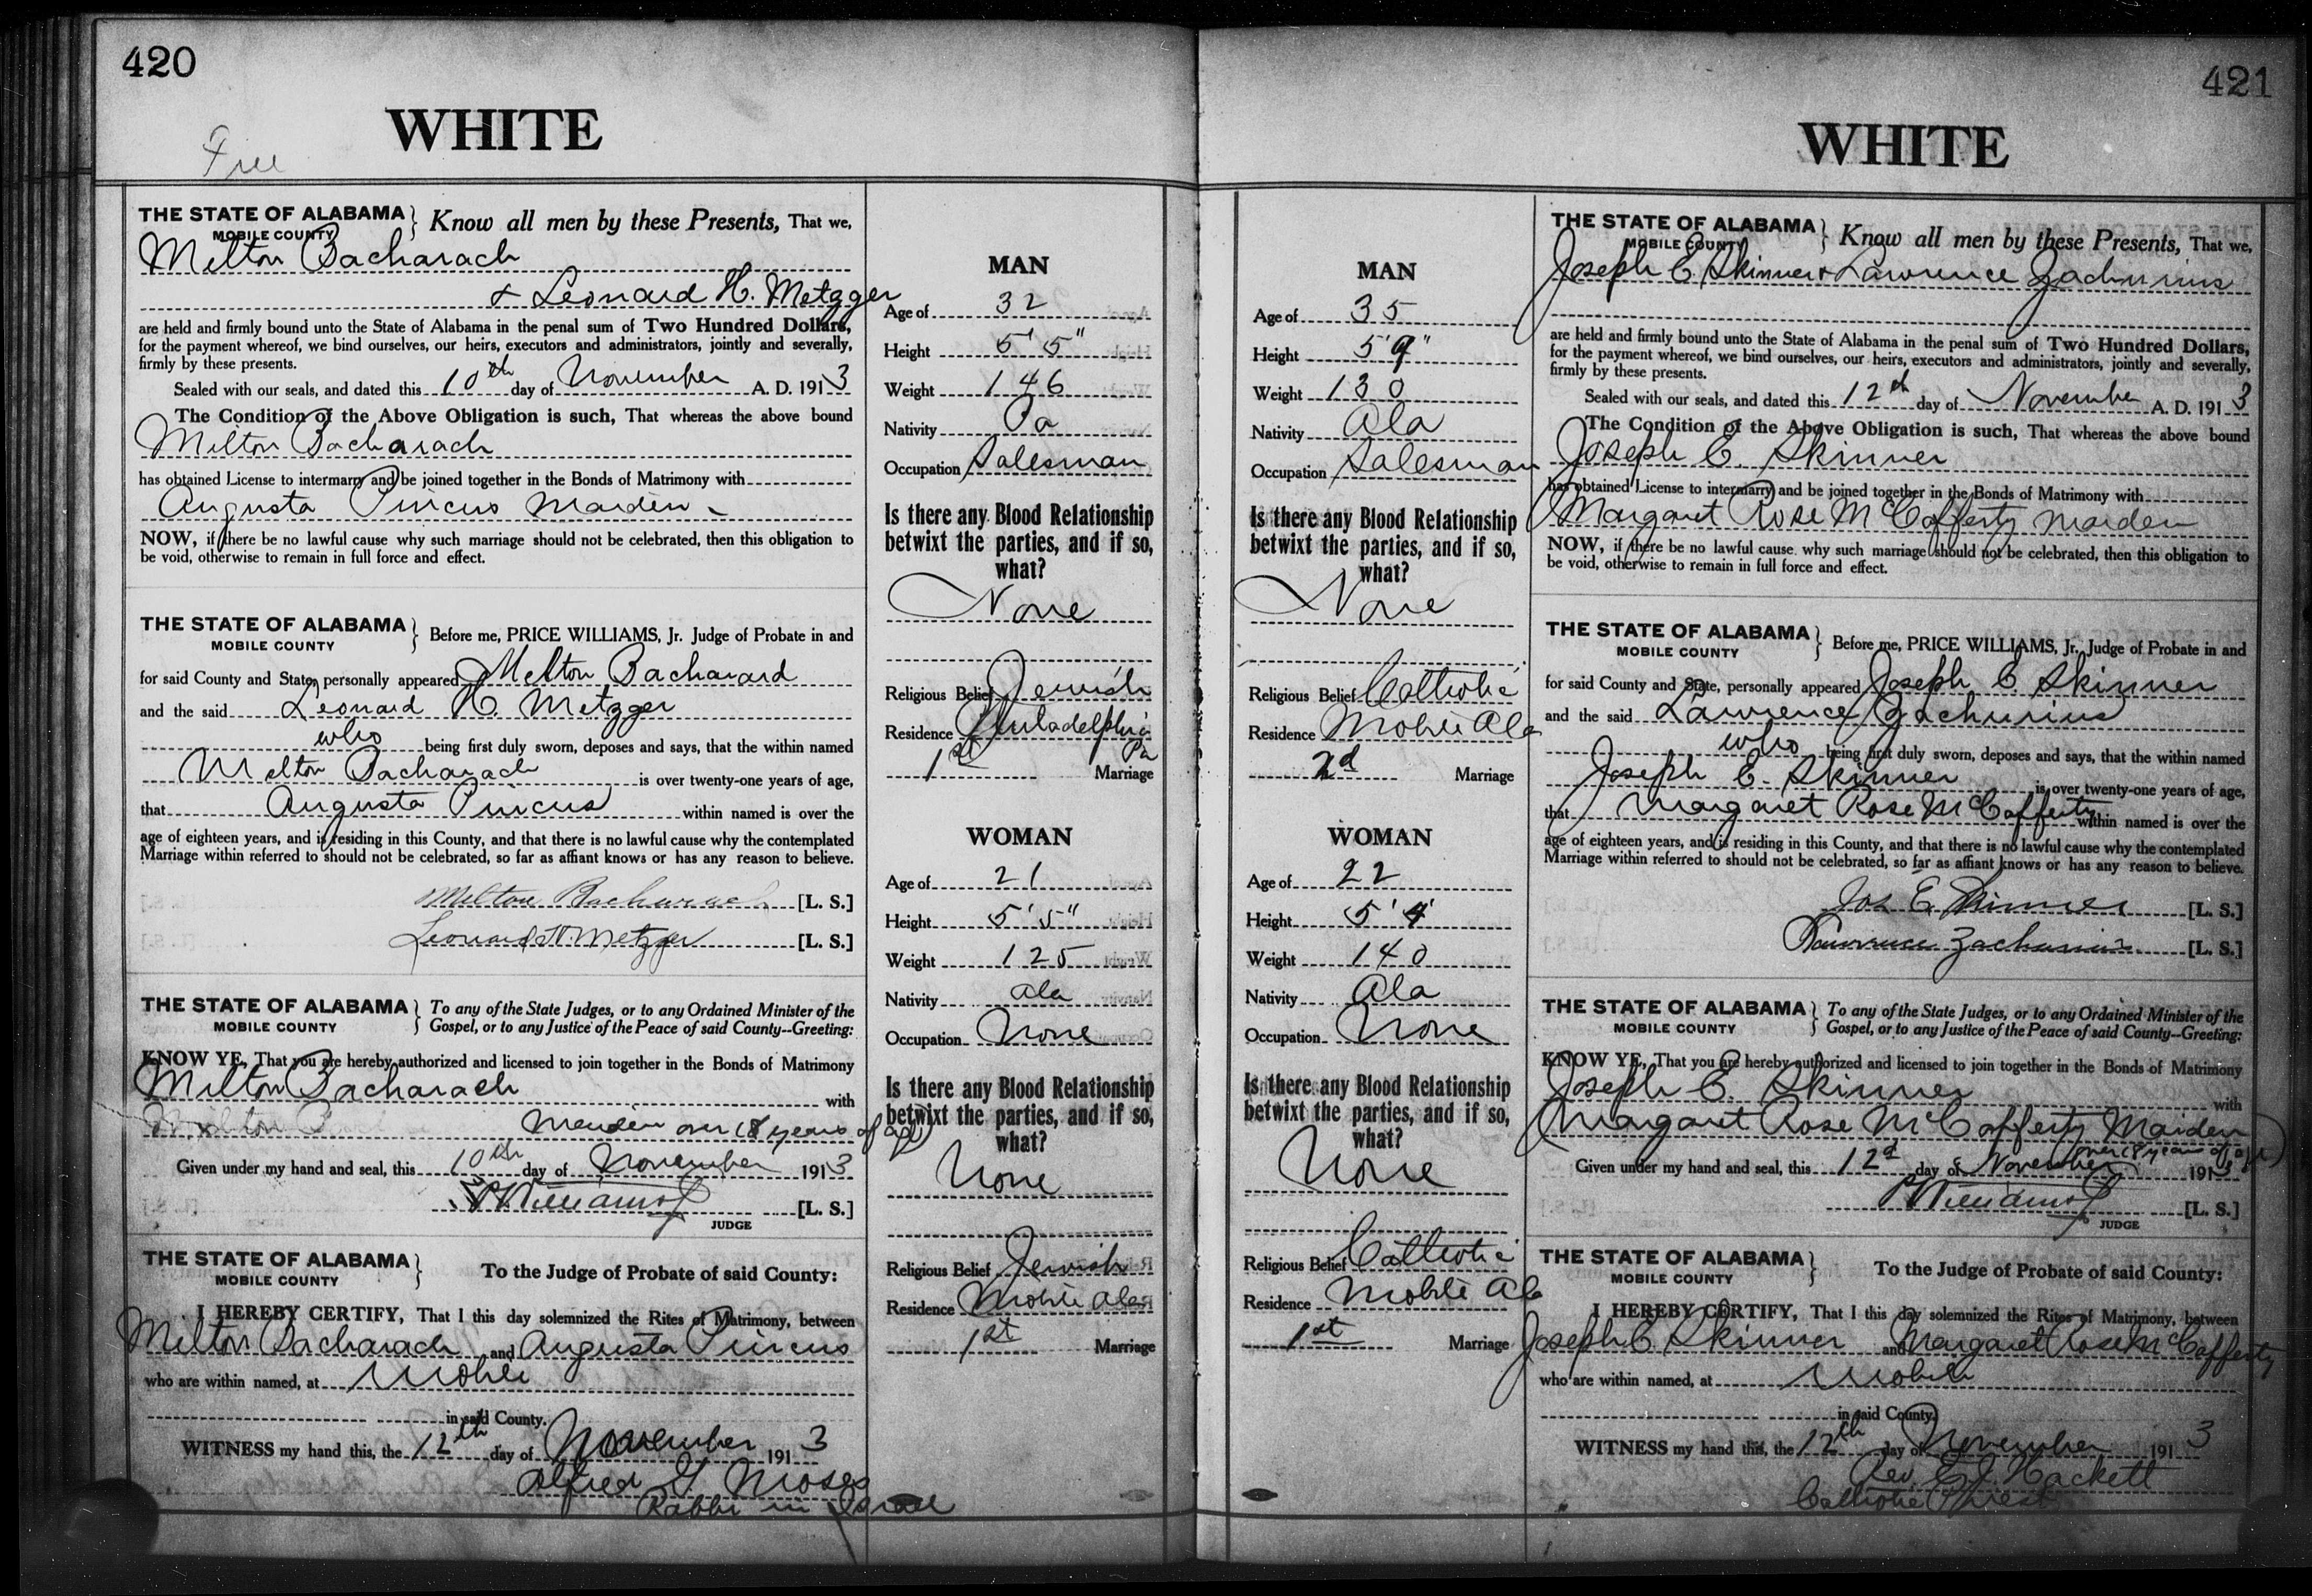 420
WHITE
Free
THE STATE OF ALABAMA
MOBILE COUNTY
Know all men by these Presents, That we,
Milton Bacharach
+ Leonard H. Metzger
are held and firmly bound unto the State of Alabama in the penal sum of Two Hundred Dollars,
for the payment whereof, we bind ourselves, our heirs, executors and administrators, jointly and severally,
firmly by these presents.
Sealed with our seals, and dated this 10th day of November A. D. 1913
The Condition of the Above Obligation is such, That whereas the above bound
Milton Bacharach
has obtained License to intermarry and be joined together in the Bonds of Matrimony with
Augusta Pincus Maiden
NOW, if there be no lawful cause why such marriage should not be celebrated, then this obligation to
be void, otherwise to remain in full force and effect.
THE STATE OF ALABAMA
MOBILE COUNTY
Before me, PRICE WILLIAMS, Jr. Judge of Probate in and
for said County and State, personally appeared Milton Bacharard
and the said Leonard H. Metzger
who being first duly sworn, deposes and says, that the within named
Milton Bacharach is over twenty-one years of age,
that Augusta Pincus within named is over the
age of eighteen years, and is residing in this County, and that there is no lawful cause why the contemplated
Marriage within referred to should not be celebrated, so far as affiant knows or has any reason to believe.
Milton Bacharach [L. S.]
Leonard H. Metzger [L. S.]
THE STATE OF ALABAMA
MOBILE COUNTY
To any of the State Judges, or to any Ordained Minister of the
Gospel, or to any Justice of the Peace of said County--Greeting:
KNOW YE, That you are hereby authorized and licensed to join together in the Bonds of Matrimony
Milton Bacharach with
Maiden over 18 years of age
Given under my hand and seal, this 10th day of November 1913
P Williams Jr [L. S.]
JUDGE
THE STATE OF ALABAMA
MOBILE COUNTY
To the Judge of Probate of said County:
I HEREBY CERTIFY, That I this day solemnized the Rites of Matrimony, between
Milton Bacharach and Augusta Pincus
who are within named, at Mobile
in said County.
WITNESS my hand this, the 12th day of November 1913
Alfred G. Moses
Rabbi in Israel
MAN
Age of 32
Height 5' 5"
Weight 146
Nativity Pa
Occupation Salesman
Is there any Blood Relationship
betwixt the parties, and if so,
what?
None
Religious Belief Jewish
Residence Philadelphia
Pa
1st Marriage
WOMAN
Age of 21
Height 5' 5"
Weight 125
Nativity Ala
Occupation None
Is there any Blood Relationship
betwixt the parties, and if so,
what?
None
Religious Belief Jewish
Residence Mobile Ala
1st Marriage
421
WHITE
MAN
Age of 35
Height 5' 9"
Weight 130
Nativity Ala
Occupation Salesman
Is there any Blood Relationship
betwixt the parties, and if so,
what?
None
Religious Belief Catholic
Residence Mobile Ala
2d Marriage
WOMAN
Age of 22
Height 5' 4'
Weight 140
Nativity Ala
Occupation None
Is there any Blood Relationship
betwixt the parties, and if so,
what?
None
Religious Belief Catholic
Residence Mobile Ala
1st Marriage
THE STATE OF ALABAMA
MOBILE COUNTY
Know all men by these Presents, That we,
Joseph E. Skinner + Lawrence Zachurius
are held and firmly bound unto the State of Alabama in the penal sum of Two Hundred Dollars,
for the payment whereof, we bind ourselves, our heirs, executors and administrators, jointly and severally,
firmly by these presents.
Sealed with our seals, and dated this 12th day of November A. D. 1913
The Condition of the Above Obligation is such, That whereas the above bound
Joseph E. Skinner
has obtained License to intermarry and be joined together in the Bonds of Matrimony with
Margaret Rose McCafferty Maiden
NOW, if there be no lawful cause why such marriage should not be celebrated, then this obligation to
be void, otherwise to remain in full force and effect.
THE STATE OF ALABAMA
MOBILE COUNTY
Before me, PRICE WILLIAMS, Jr. Judge of Probate in and
for said County and State, personally appeared Joseph E Skinner
and the said Lawrence Zachurius
who being first duly sworn, deposes and says, that the within named
Joseph E. Skinner is over twenty-one years of age,
that Margaret Rose McCafferty within named is over the
age of eighteen years, and is residing in this County, and that there is no lawful cause why the contemplated
Marriage within referred to should not be celebrated, so far as affiant knows or has any reason to believe.
Jos E. Skinner [L. S.]
Lawrence Zachurius [L. S.]
THE STATE OF ALABAMA
MOBILE COUNTY
To any of the State Judges, or to any Ordained Minister of the
Gospel, or to any Justice of the Peace of said County--Greeting:
KNOW YE, That you are hereby authorized and licensed to join together in the Bonds of Matrimony
Joseph E. Skinner with
Margaret Rose McCafferty Maiden
over 18 years of age
Given under my hand and seal, this 12d day of November 1913
P Williams Jr [L. S.]
JUDGE
THE STATE OF ALABAMA
MOBILE COUNTY
To the Judge of Probate of said County:
I HEREBY CERTIFY, That I this day solemnized the Rites of Matrimony, between
Joseph E Skinner and Margaret Rose McCafferty
who are within named, at Mobile
in said County.
WITNESS my hand this, the 12th day of November 1913
Rev. E. J. Hackett
Catholic Priest